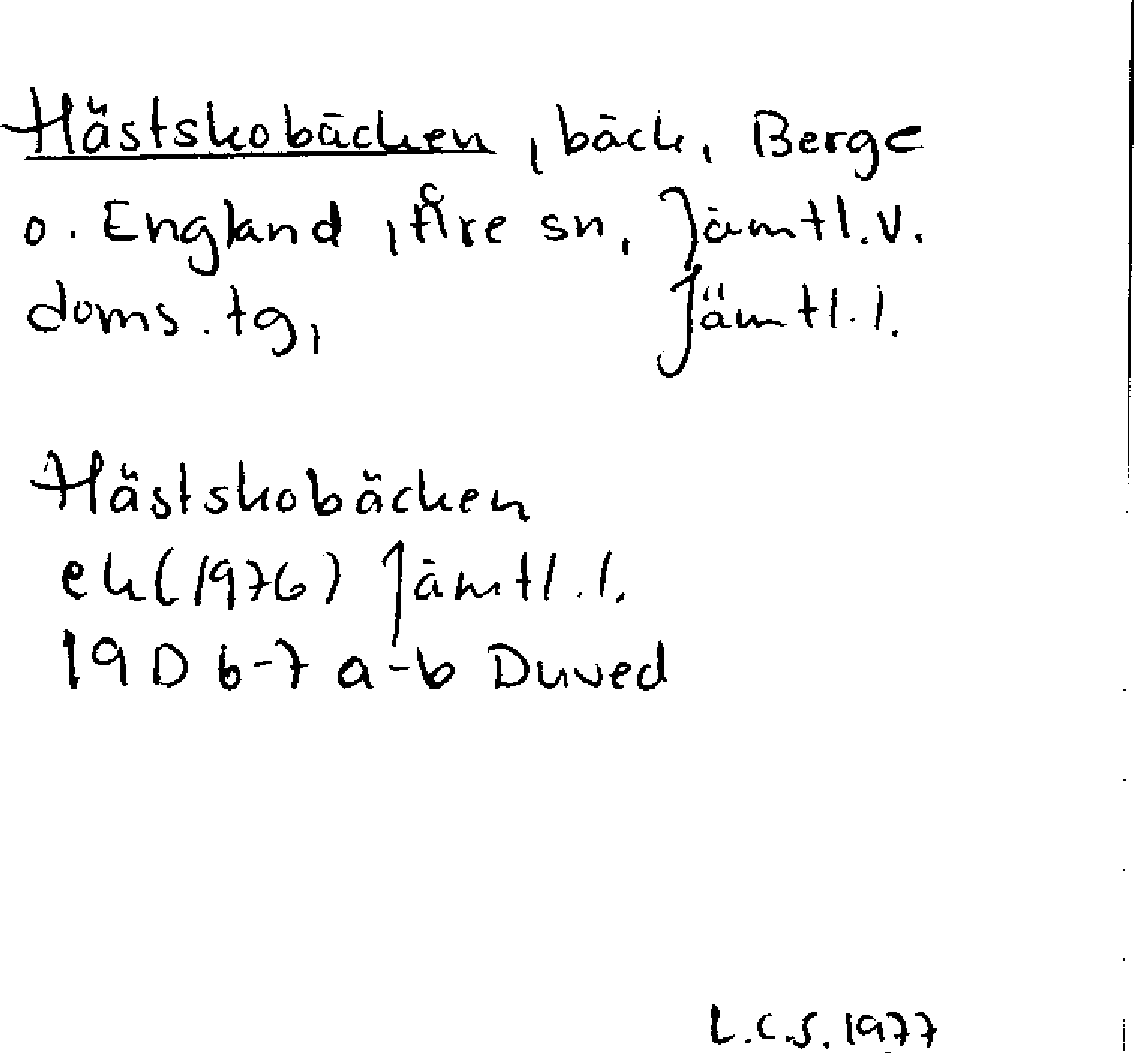 Hästskobäcken, bäck, Berge
o. England, Åre sn, Jämtl. v.
doms. tg, Jämtl. l.
Hästskobäcken
ek (1976) Jämtl. l.
19 D 6-7 a-b Duved
L.C.S. 1977